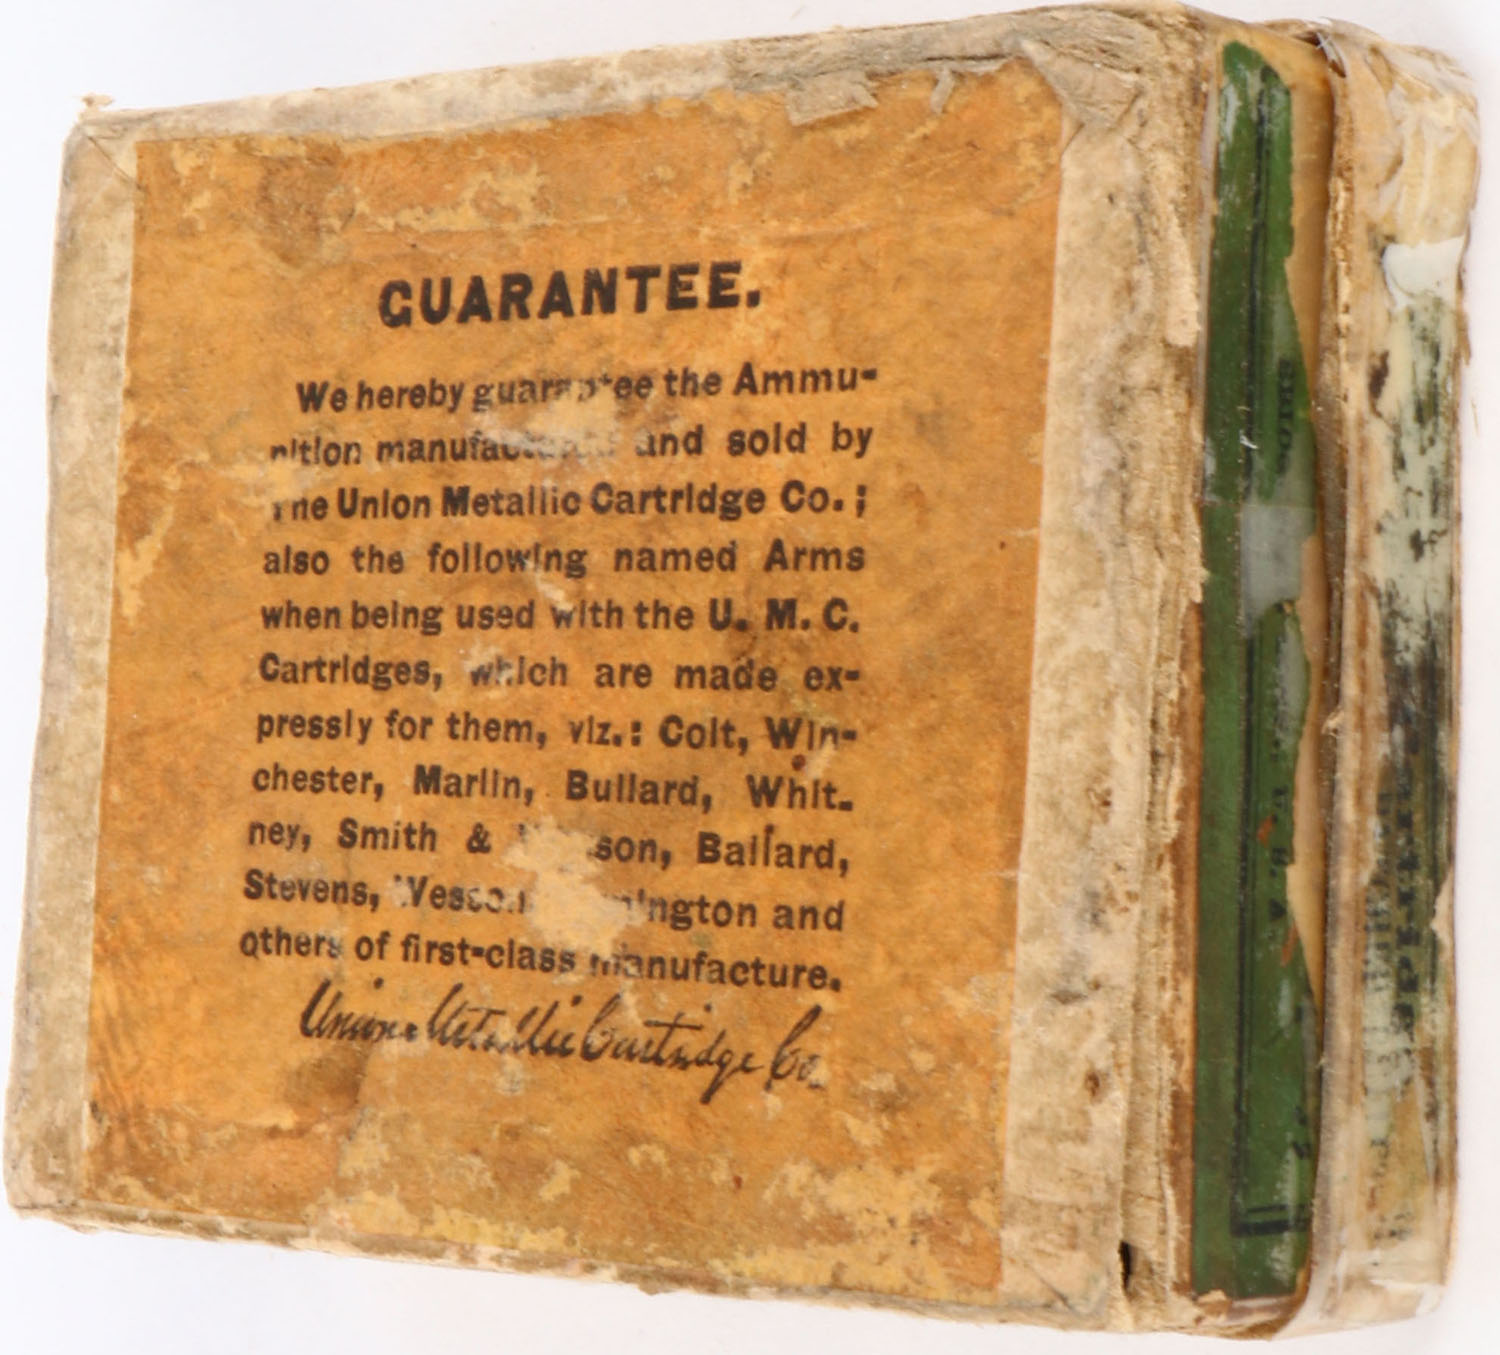 GUARANTEE.
We hereby guarantee the Ammu-
nition manufactured and sold by
The Union Metallic Cartridge Co. ;
also the following named Arms
when being used with the U. M. C.
Cartridges, which are made ex-
pressly for them, viz.: Colt, Win-
chester, Marlin, Bullard, Whit-
ney, Smith & Wesson, Ballard,
Stevens, Wesson, Remington and
others of first-class manufacture.
Union Metallic Cartridge Co.